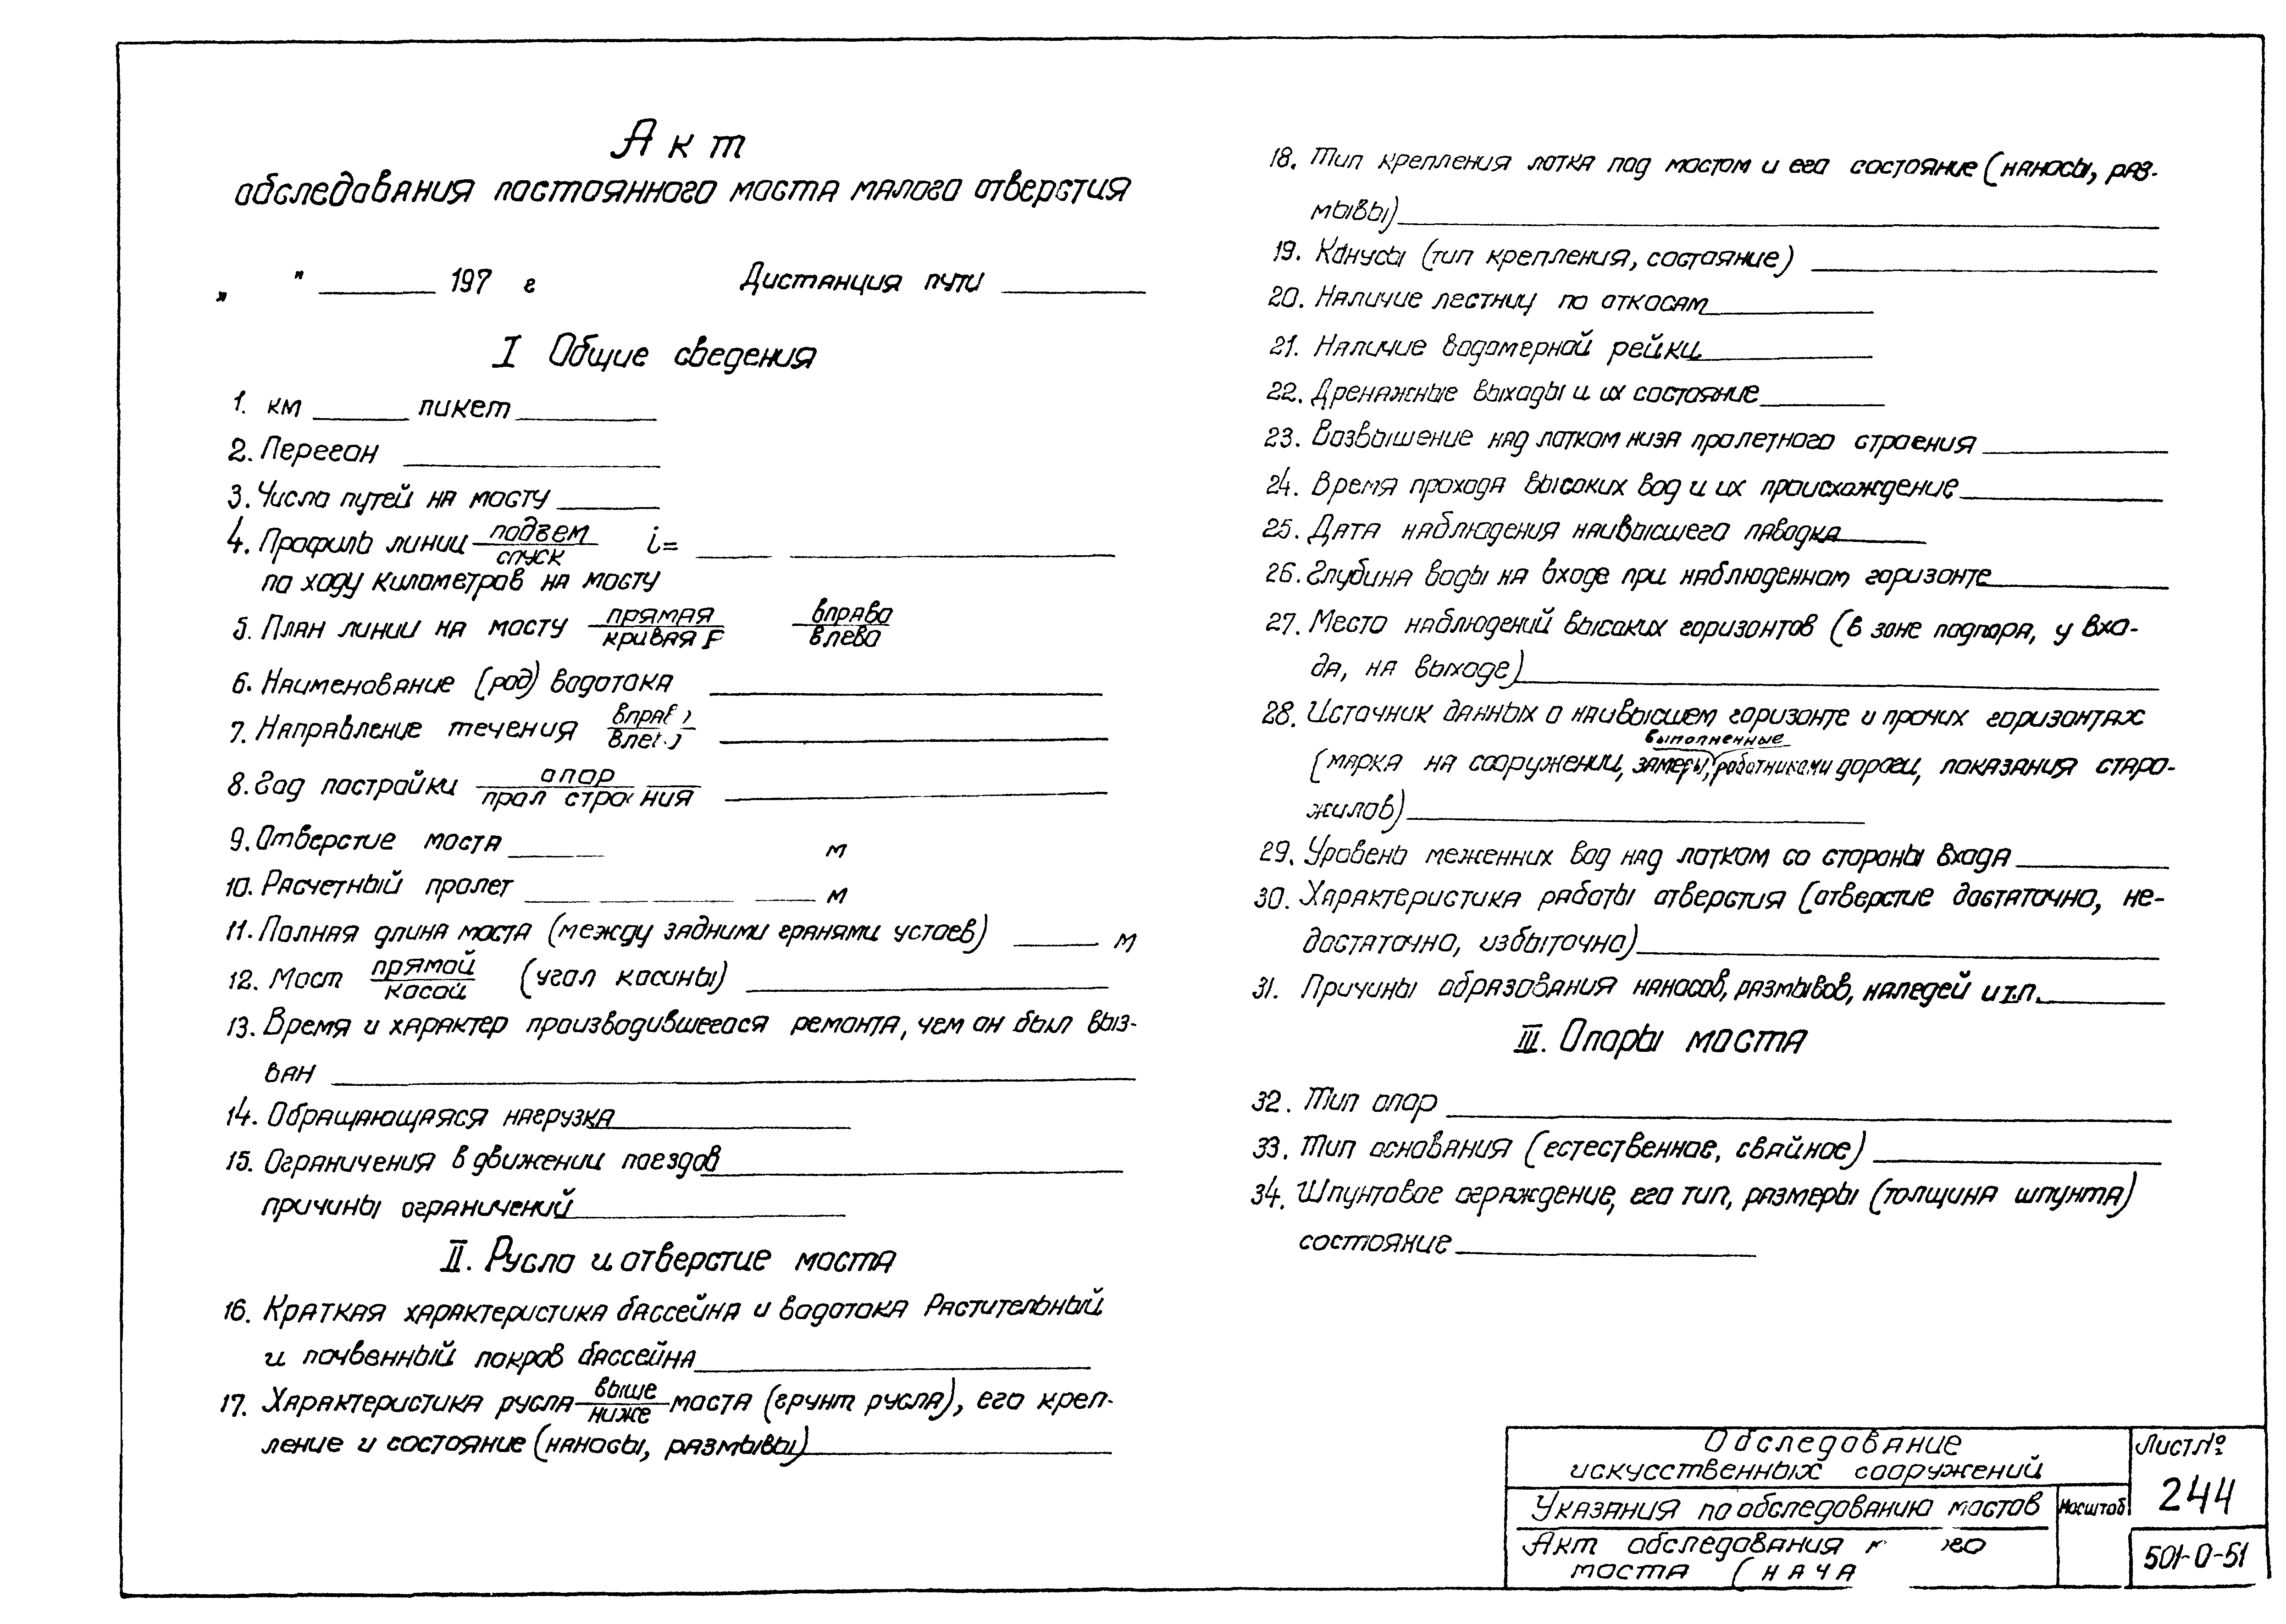 Акт
обследования постоянного моста малого отверстия
„ " ______ 197 г Дистанция пути ______
I Общие сведения
1. км ______ пикет ______
2. Перегон ______
3. Число путей на мосту ______
4. Профиль линии подъем/спуск i= ______
по ходу километров на мосту
5. План линии на мосту прямая/кривая вправо/влево
6. Наименование (род) водотока ______
7. Направление течения ______
8. Год постройки опор/прол строения ______
9. Отверстие моста ______ м
10. Расчетный пролет ______ м
11. Полная длина моста (между задними гранями устоев) ______ м
12. Мост прямой/косой (угол косины) ______
13. Время и характер производившегося ремонта, чем он был выз-
ван ______
14. Обращающаяся нагрузка ______
15. Ограничения в движении поездов ______
причины ограничений ______
II. Русло и отверстие моста
16. Краткая характеристика бассейна и водотока Растительный
и почвенный покров бассейна ______
17. Характеристика русла выше/ниже моста (грунт русла), его креп-
ление и состояние (наносы, размывы) ______
18. Тип крепления лотка под мостом и его состояние (наносы, раз-
мывы) ______
19. Конусы (тип крепления, состояние) ______
20. Наличие лестниц по откосам ______
21. Наличие водомерной рейки ______
22. Дренажные выходы и их состояние ______
23. Возвышение над лотком низа пролетного строения ______
24. Время прохода высоких вод и их происхождение ______
25. Дата наблюдения наивысшего паводка ______
26. Глубина воды на входе при наблюденном горизонте ______
27. Место наблюдений высоких горизонтов (в зоне подпора, у вхо-
да, на выходе) ______
28. Источник данных о наивысшем горизонте и прочих горизонтах
(марка на сооружении, замеры, выполненные работниками дороги, показания старо-
жилов) ______
29. Уровень меженних вод над лотком со стороны входа ______
30. Характеристика работы отверстия (отверстие достаточно, не-
достаточно, избыточно) ______
31. Причины образования наносов, размывов, наледей и т.п. ______
III. Опоры моста
32. Тип опор ______
33. Тип основания (естественное, свайное) ______
34. Шпунтовое ограждение, его тип, размеры (толщина шпунта)
состояние ______
Обследование
искусственных сооружений
Лист №
244
Указания по обследованию мостов
Масштаб
Акт обследования
моста (нача
501-0-51